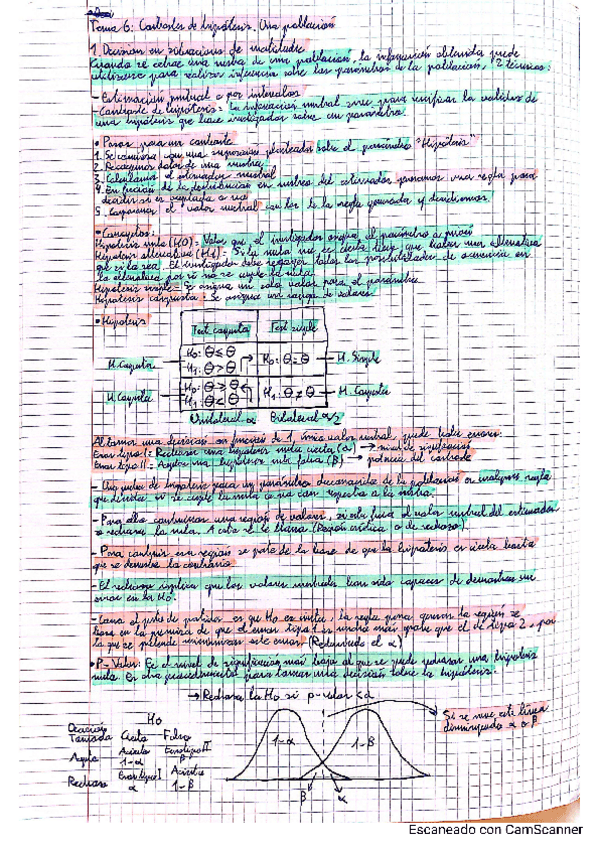 Tema 6: Contrastes de hipótesis. Una población
1. Decisión en situaciones de
Cuando se extrae una muestra de una población, la información obtenida puede
utilizarse para realizar inferencia sobre los parámetros de la población, 2 técnicas:
- Estimación puntual o por intervalos
- Contraste de hipótesis = La información muestral sirve para verificar la validez de
una hipótesis que hace investigador sobre un parámetro.
• Pasos para un contraste
1. Se comienza con una suposición planteada sobre el parámetro "Hipótesis"
2. Recogemos datos de una muestra
3. Calculamos el estimador muestral
4. En función de la distribución en muestreo del estimador ponemos una regla para
decidir si es aceptada o no
5. Comparamos el valor muestral con los de la regla generada y decidimos.
• Conceptos:
Hipótesis nula (H0) = Valor que el investigador asigna al parámetro a priori
Hipótesis alternativa (H1) = Si la nula no es cierta tiene que haber una alternativa
que sí lo sea. El investigador debe recoger todas las posibilidades de ocurrencia en
la alternativa por si no se cumple la nula.
Hipótesis simple = Se asigna un solo valor para el parámetro
Hipótesis compuesta = Se asigna un rango de valores.
• Hipótesis
Test compuesto Test simple
H. Compuesta H0: Θ ≤ Θ H0: Θ = Θ H. Simple
H1: Θ > Θ
H. Compuesta H0: Θ ≥ Θ H1: Θ ≠ Θ H. Compuesta
H1: Θ < Θ
Unilateral α Bilateral α/2
Al tomar una decisión en función de 1 único valor muestral, puede haber errores:
Error tipo I = Rechazar una hipótesis nula cierta (α) → nivel de significación
Error tipo II = Aceptar una hipótesis nula falsa (β) → potencia del contraste
- Una prueba de hipótesis para un parámetro desconocido de la población es cualquier regla
que decida si se cumple la nula o no con respecto a la muestra.
- Para ello construimos una región de valores, si está fuera el valor muestral del estimador
se rechaza la nula. A esta se le llama (Región crítica o de rechazo).
- Para construir esa región se parte de la base de que la hipótesis es cierta hasta
que se demuestre lo contrario
- El rechazo implica que los valores muestrales han sido capaces de demostrar un
error en la H0.
- Como el punto de partida es que H0 es cierta, la regla para generar la región se
basa en la premisa de que el error tipo 1 es mucho más grave que el de tipo 2, por
lo que se pretende minimizar este error. (Reduciendo el α)
• P-Valor: Es el nivel de significación más bajo al que se puede rechazar una hipótesis
nula. Es otro procedimiento para tomar una decisión sobre la hipótesis.
→ Rechazar la H0 si p-valor < α
H0
Decisión
Tomada Cierta Falsa
Acepta Acierto Error tipo II
1-α β
Rechaza Error tipo I Acierto
α 1-β
1-α 1-β
β α
Si se mueve esta línea
disminuyendo α o β
Escaneado con CamScanner